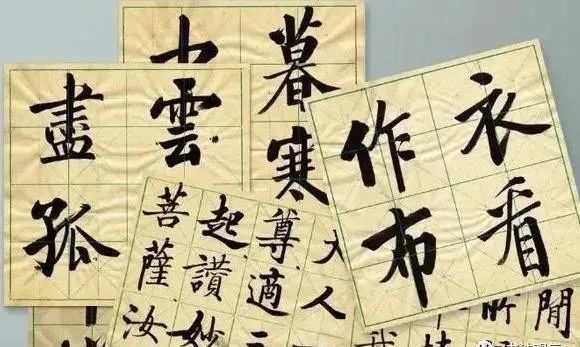 盡孤
暮寒
雲
衣看
作布
大人
尊適
起讚妙
菩薩汝
閒
所